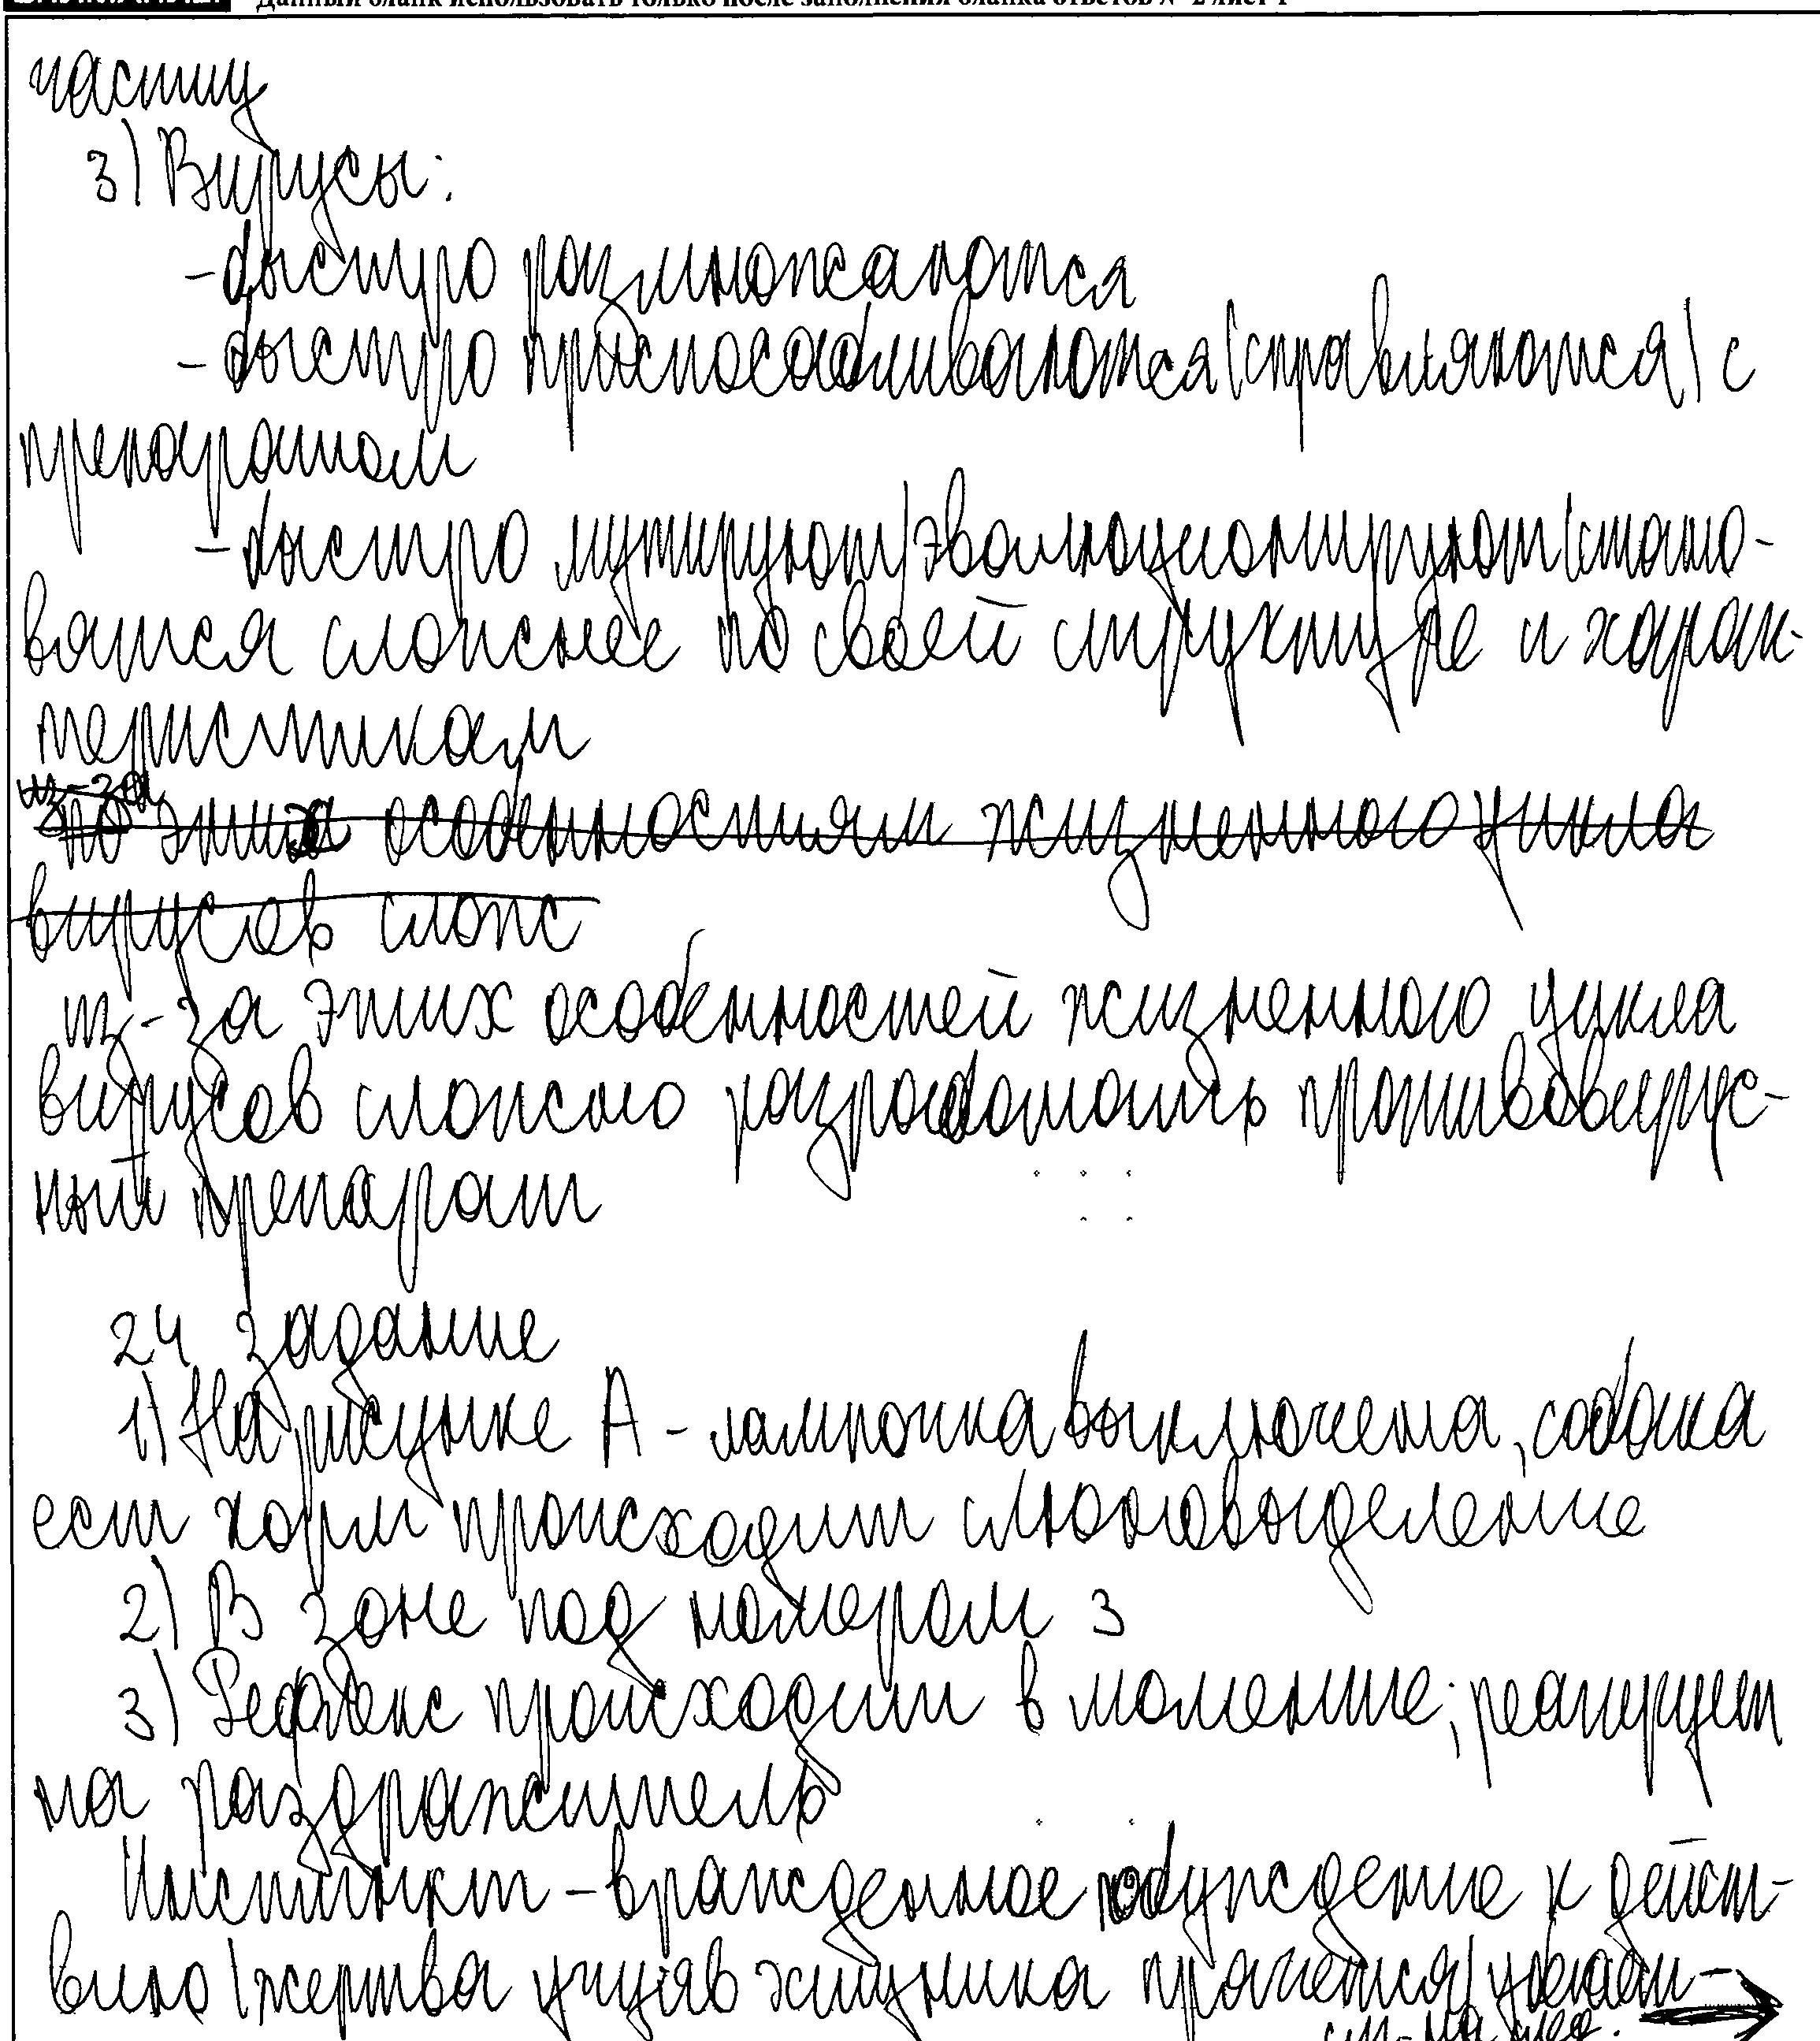 Данный бланк использовать только после заполнения бланка ответов № 2 лист 1
частиц
3) Вирусы:
- быстро размножаются
- быстро приспосабливаются (справляются) с
препаратом
- быстро мутируют/эволюционируют (стано-
вятся сложнее по своей структуре и харак-
теристикам
из-за
по этим особенностям жизненного цикла
вирусов слож
из-за этих особенностей жизненного цикла
вирусов сложно разработать противовирус-
ный препарат
24 задание
1) На рисунке А - лампочка выключена, собака
ест корм происходит слюновыделение
2) В зоне под номером 3
3) Рефлекс происходит в моменте; реагирует
на раздражитель
Инстинкт - врожденное побуждение к дейст-
вию (жертва учуяв хищника прячется/убегает